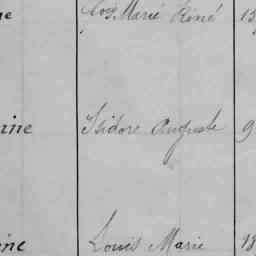 Marie René 15
ine Isidore Auguste 9
ine Louis Marie 18